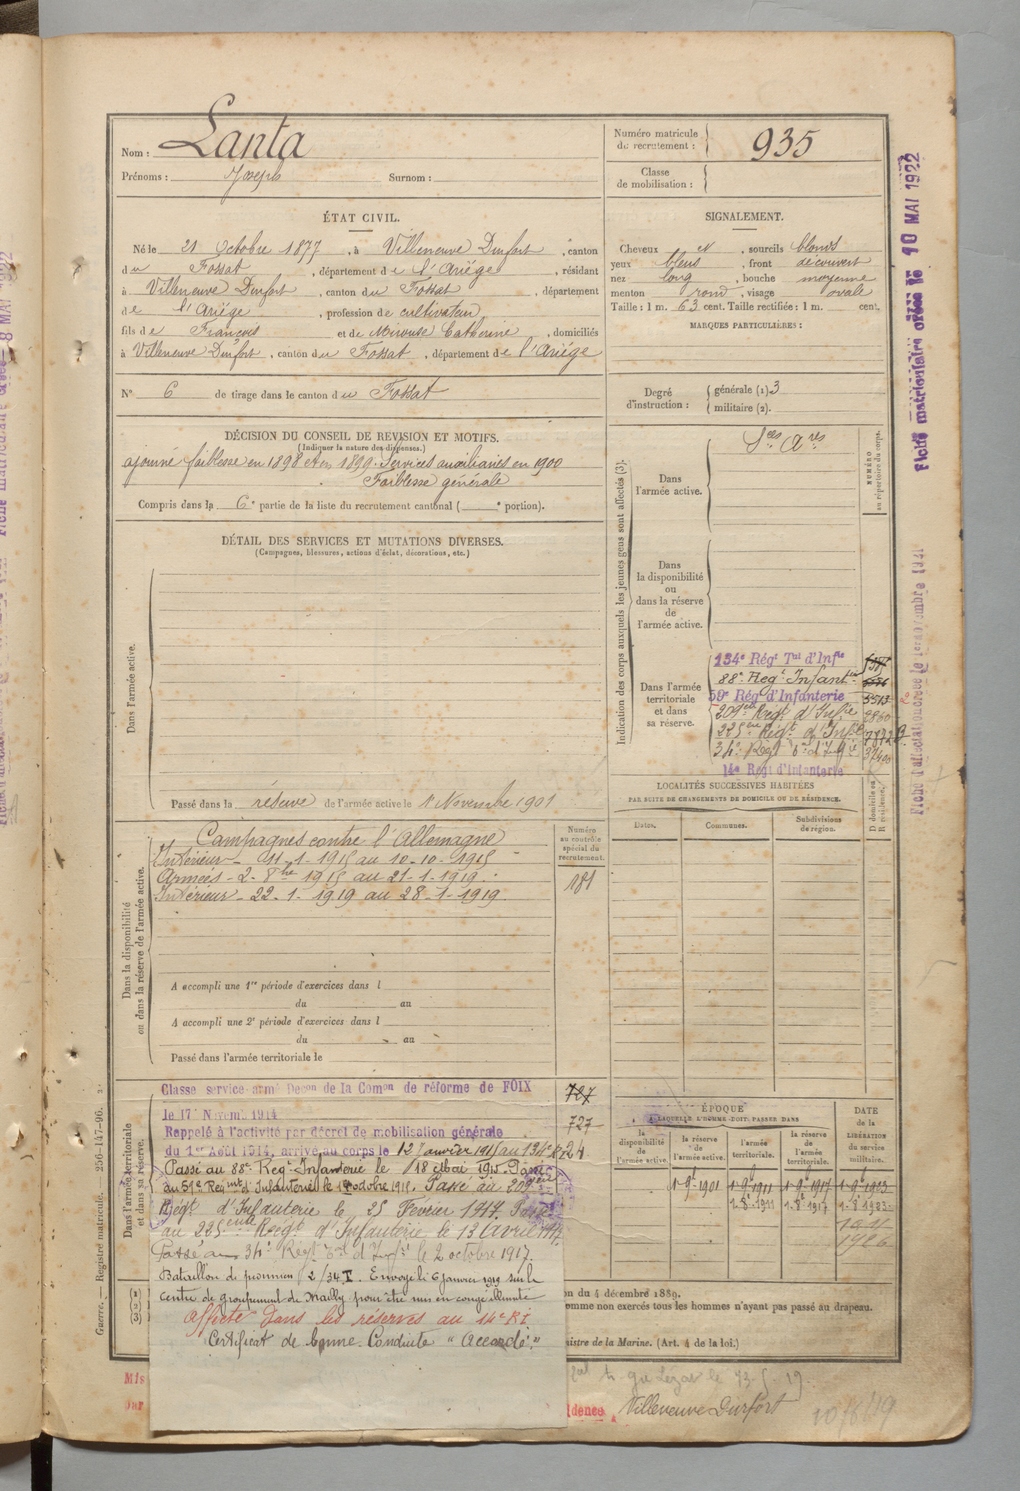 Nom : Lanta
Prénoms : Joseph Surnom :
Numéro matricule du recrutement : 935
Classe de mobilisation :
ÉTAT CIVIL.
Né le 21 Octobre 1877, à Villeneuve Durfort, canton
du Fossat, département de l'Ariége, résidant
à Villeneuve Durfort, canton du Fossat, département
de l'Ariége, profession de cultivateur
fils de François et de Catherine, domiciliés
à Villeneuve Durfort, canton du Fossat, département de l'Ariége
N° 6 de tirage dans le canton du Fossat
SIGNALEMENT.
Cheveux et, sourcils blonds
yeux bleus, front découvert
nez long, bouche moyenne
menton rond, visage ovale
Taille : 1 m. 63 cent. Taille rectifiée : 1 m. cent.
MARQUES PARTICULIÈRES :
Degré d'instruction : générale (1) 3
militaire (2).
DÉCISION DU CONSEIL DE RÉVISION ET MOTIFS.
(Indiquer la nature des dispenses.)
ajourné faiblesse en 1898 et en 1899. Services auxiliaires en 1900
Faiblesse générale
Compris dans la 6e partie de la liste du recrutement cantonal ( e portion).
DÉTAIL DES SERVICES ET MUTATIONS DIVERSES.
(Campagnes, blessures, actions d'éclat, décorations, etc.)
Dans l'armée active.
Passé dans la réserve de l'armée active le 1er Novembre 1901
Indication des corps auxquels les jeunes gens sont affectés (3).
NUMÉRO au répertoire du corps.
Dans l'armée active.
Sces Ares
Dans la disponibilité ou dans la réserve de l'armée active.
Dans l'armée territoriale et dans sa réserve.
134e Régt Tal d'Infie
88e Regt Infanterie
59e Rég d'Infanterie 3513
209eme Regt d'Infie 9860
225eme Régt d'Infie
34e Regt
14e Regt d'Infanterie
LOCALITÉS SUCCESSIVES HABITÉES
PAR SUITE DE CHANGEMENTS DE DOMICILE OU DE RÉSIDENCE.
Dates. Communes. Subdivisions de région. D domicile ou R résidence.
Dans la disponibilité ou dans la réserve de l'armée active.
Numéro au contrôle spécial du recrutement.
181
Campagnes contre l'Allemagne
Intérieur - 11-1-1915 au 10-10-1915
Armées - 2-8bre 1915 au 21-1-1919
Intérieur - 22-1-1919 au 28-1-1919
A accompli une 1re période d'exercices dans l
du au
A accompli une 2e période d'exercices dans l
du au
Passé dans l'armée territoriale le
Dans l'armée territoriale et dans sa réserve.
Classe service armé Décon de la Comon de réforme de FOIX 727
le 17 Novemb 1914 727
Rappelé à l'activité par décret de mobilisation générale
du 1er Août 1914, arrivé au corps le 12 Janvier 1915 au 134e
Passé au 88e Regt Infanterie le 18 Mai 1915. Passé
au 59e Regimt d'Infanterie le 1er octobre 1915. Passé au 209eme
Régt d'Infanterie le 25 Février 1917. Passé
au 225eme Régt d'Infanterie le 13 Avril 1917
Passé au 34e Régt tal d'Infie le 2 octobre 1917
Bataillon de pionniers 2/34 T. Envoyé le 6 janvier 1919 sur le
centre de groupement de Mailly pour être mis en congé illimité
affecté dans les réserves au 14e R.I
Certificat de bonne Conduite "Accordé."
ÉPOQUE
À LAQUELLE L'HOMME DOIT PASSER DANS
la disponibilité de l'armée active. la réserve de l'armée active. l'armée territoriale. la réserve de l'armée territoriale. DATE de la LIBÉRATION du service militaire.
1-9-1901 1-9-1911 1-9-1917 1-9-1923
1-8-1911 1-8-1917 1-8-1923
1926
(1)
(2)
(3)
on du 4 décembre 1889.
omme non exercés tous les hommes n'ayant pas passé au drapeau.
nistre de la Marine. (Art. 4 de la loi.)
Mis
Par
dence Villeneuve Durfort
Guerre. — Registre matricule. — 256-147-96.
Fiche matriculaire créée le 10 MAI 1922
8 MAI